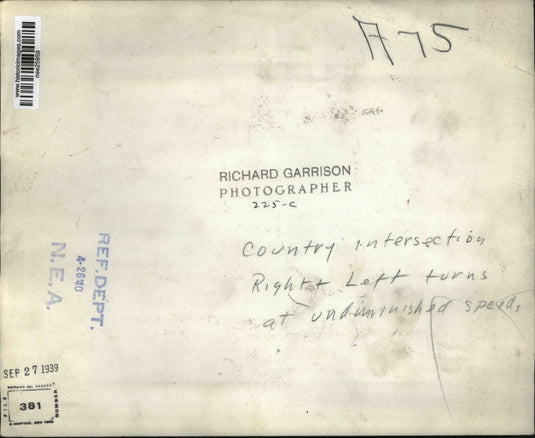 www.historicimages.com
A75
RICHARD GARRISON
PHOTOGRAPHER
225-C
Country intersection
Right + Left turns
at undiminished speeds
REF. DEPT.
4-26 40
N.E.A.
SEP 27 1939
FILE
381
NUMBER